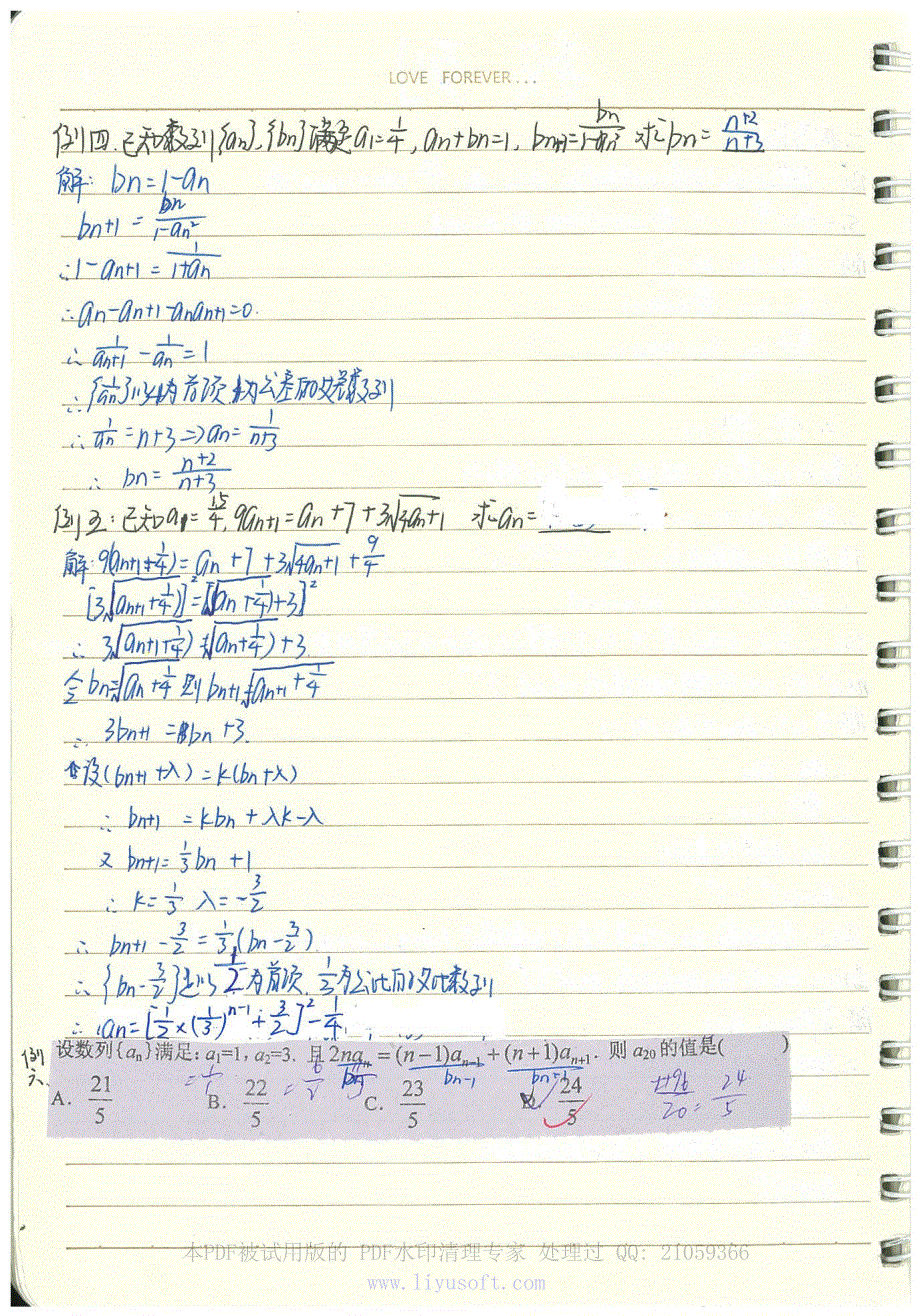 LOVE FOREVER...
例四.已知数列{an},{bn}满足a₁=1/4, an+bn=1, bn+1=bn/(1-an²) 求bn=(n+2)/(n+3)
解: bn=1-an
bn+1=bn/(1-an²)
∴1-an+1=1/(1+an)
∴an-an+1-anan+1=0.
∴1/an+1-1/an=1
∴{1/an}以4为首项,1为公差的等差数列
∴1/an=n+3⇒an=1/(n+3)
∴bn=(n+2)/(n+3)
例五:已知a₁=15/4, 9an+1=an+7+3√(4an+1) 求an=
解:9(an+1+1/4)=an+7+3√(4an+1)+9/4
[3√(an+1+1/4)]²=[√(an+1/4)+3]²
∴3√(an+1+1/4)=√(an+1/4)+3.
令bn=√(an+1/4) 则bn+1=√(an+1+1/4)
∴3bn+1=bn+3.
设(bn+1+λ)=k(bn+λ)
∴bn+1=kbn+λk-λ
又bn+1=1/3bn+1
∴k=1/3 λ=-3/2
∴bn+1-3/2=1/3(bn-3/2)
∴{bn-3/2}是以1/2为首项,1/3为公比的等比数列
∴an=[1/2×(1/3)ⁿ⁻¹+3/2]²-1/4
例六. 设数列{an}满足: a₁=1, a₂=3. 且2nan=(n-1)an-1+(n+1)an+1. 则 a₂₀的值是( )
=1/1 =6/2 bn bn-1 bn+1
A. 21/5 B. 22/5 C. 23/5 D. 24/5 1+96/20=24/5
本PDF被试用版的 PDF水印清理专家 处理过 QQ: 21059366
www.liyusoft.com